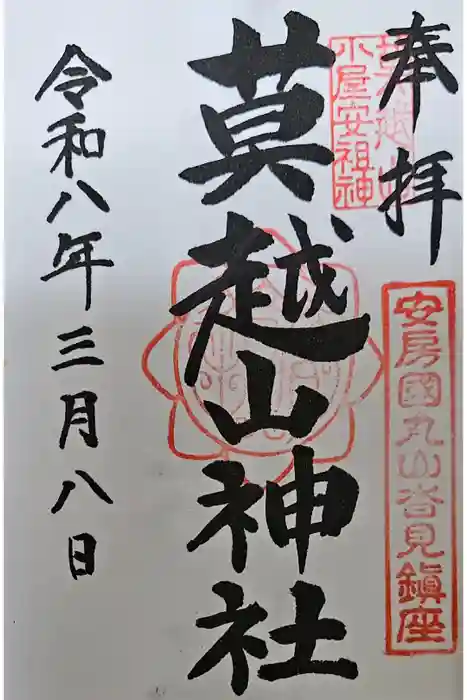 奉拝
安房國丸山沓見鎮座
小屋安祖神
莫越山神社
令和八年三月八日